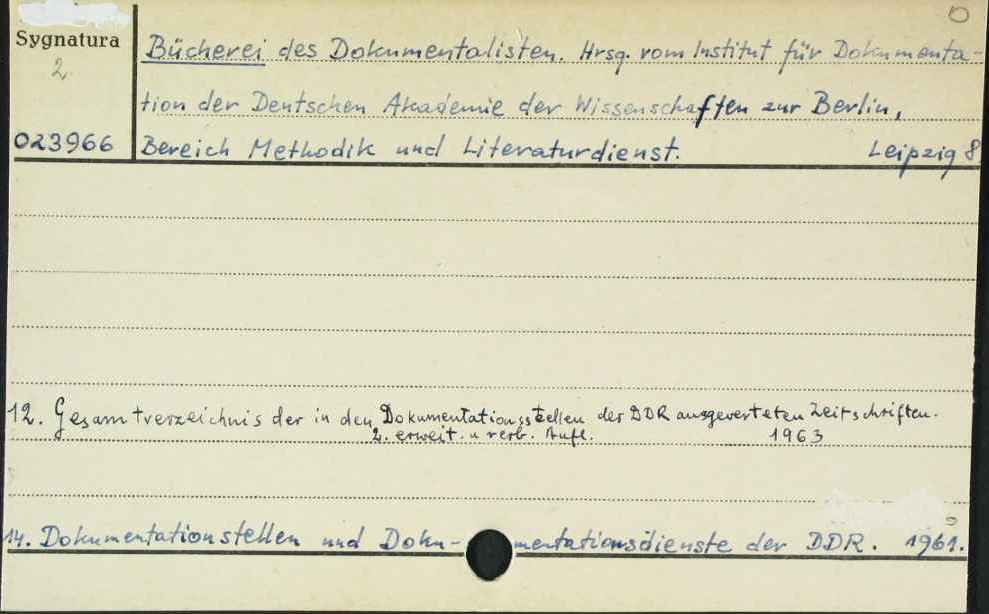 Sygnatura
2
023966
Bücherei des Dokumentalisten. Hrsg. vom Institut für Dokumenta-
tion der Deutschen Akademie der Wissenschaften zur Berlin,
Bereich Methodik und Literaturdienst. Leipzig 8
12. Gesamtverzeichnis der in den Dokumentationsstellen der DDR ausgewerteten Zeitschriften.
2. erweit. u verb. Aufl. 1963
14. Dokumentationstellen und Doku-mentationsdienste der DDR. 1961.